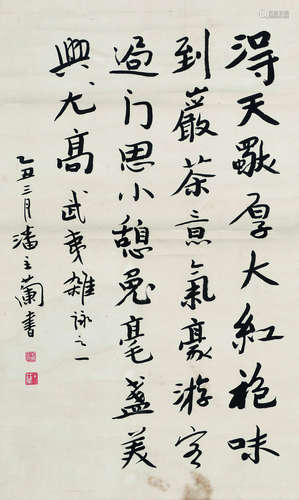 得天獨厚大紅袍味
到巖茶意氣豪游客
過门思小憩兔毫盞美
興尤高 武夷雜詠之一
乙丑三月潘主蘭書